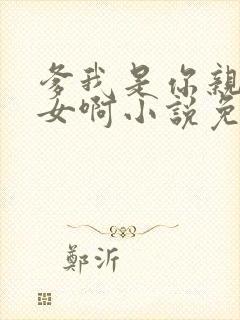 爹我是你親
女啊小說免
鄭沂